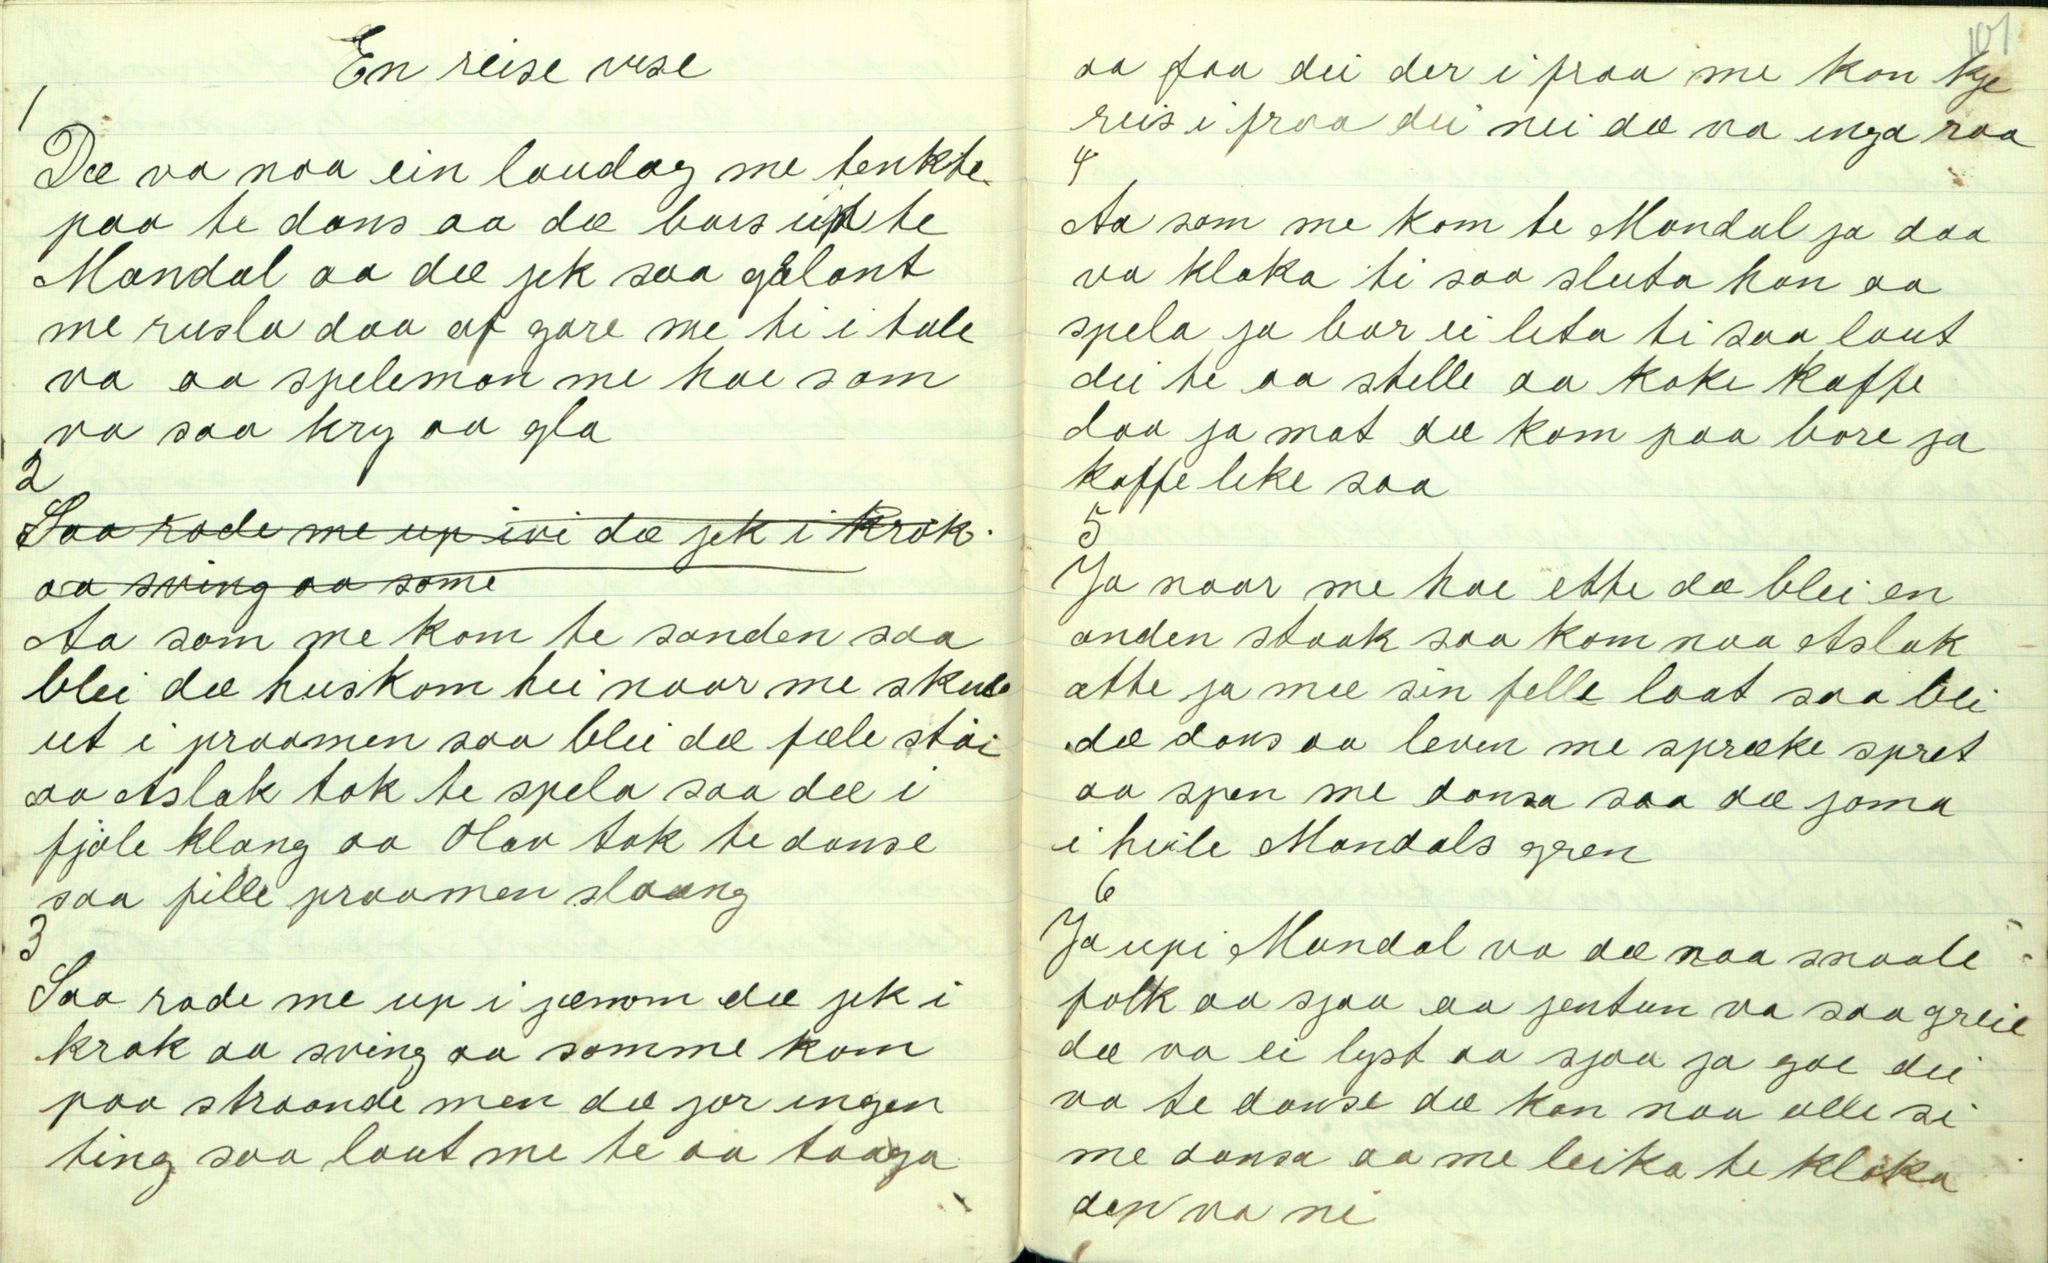 En reise vise
1
Dæ va naa ein laudag me tenkte
paa te dans aa dæ bars up te
Mandal aa dæ jek saa galant
me rusla daa af gare me ti i tale
va aa speleman me hae som
va saa kry aa gla
2
Saa rode me up ivi dæ jek i krok
aa sving aa some
Aa som me kom te sanden saa
blei dæ huskom hei naar me skule
ut i praamen saa blei dæ fæle støi
aa Aslak tok te spela saa dæ i
fjøle klang aa Olav tok te danse
saa fille praamen slaang
3
Saa rode me up i jænom dæ jek i
krok aa sving aa somme kom
paa straande men dæ jor ingen
ting saa laut me te aa taaga
101
aa faa dei der i fraa me kon kje
reis i fraa dei nei dæ va inga raa
4
Aa som me kom te Mandal ja daa
va kloka ti saa sluta han aa
spela ja bar ei leta ti saa laut
dei te aa stelle aa koke kaffe
daa ja mat dæ kom paa bore ja
kaffe like saa
5
Ja naar me hae ette dæ blei en
anden staak saa kom naa Aslak
atte ja mæ sin felle laat saa blei
dæ dans aa leven me spræke spret
aa spen me dansa saa dæ joma
i heile Mandals gren
6
Ja upi Mandal va dæ naa snaale
folk aa sjaa aa jentun va saa greie
dæ va ei lyst aa sjaa ja gae dei
va te danse dæ kan naa alle si
me dansa aa me leika te kloka
den va ni